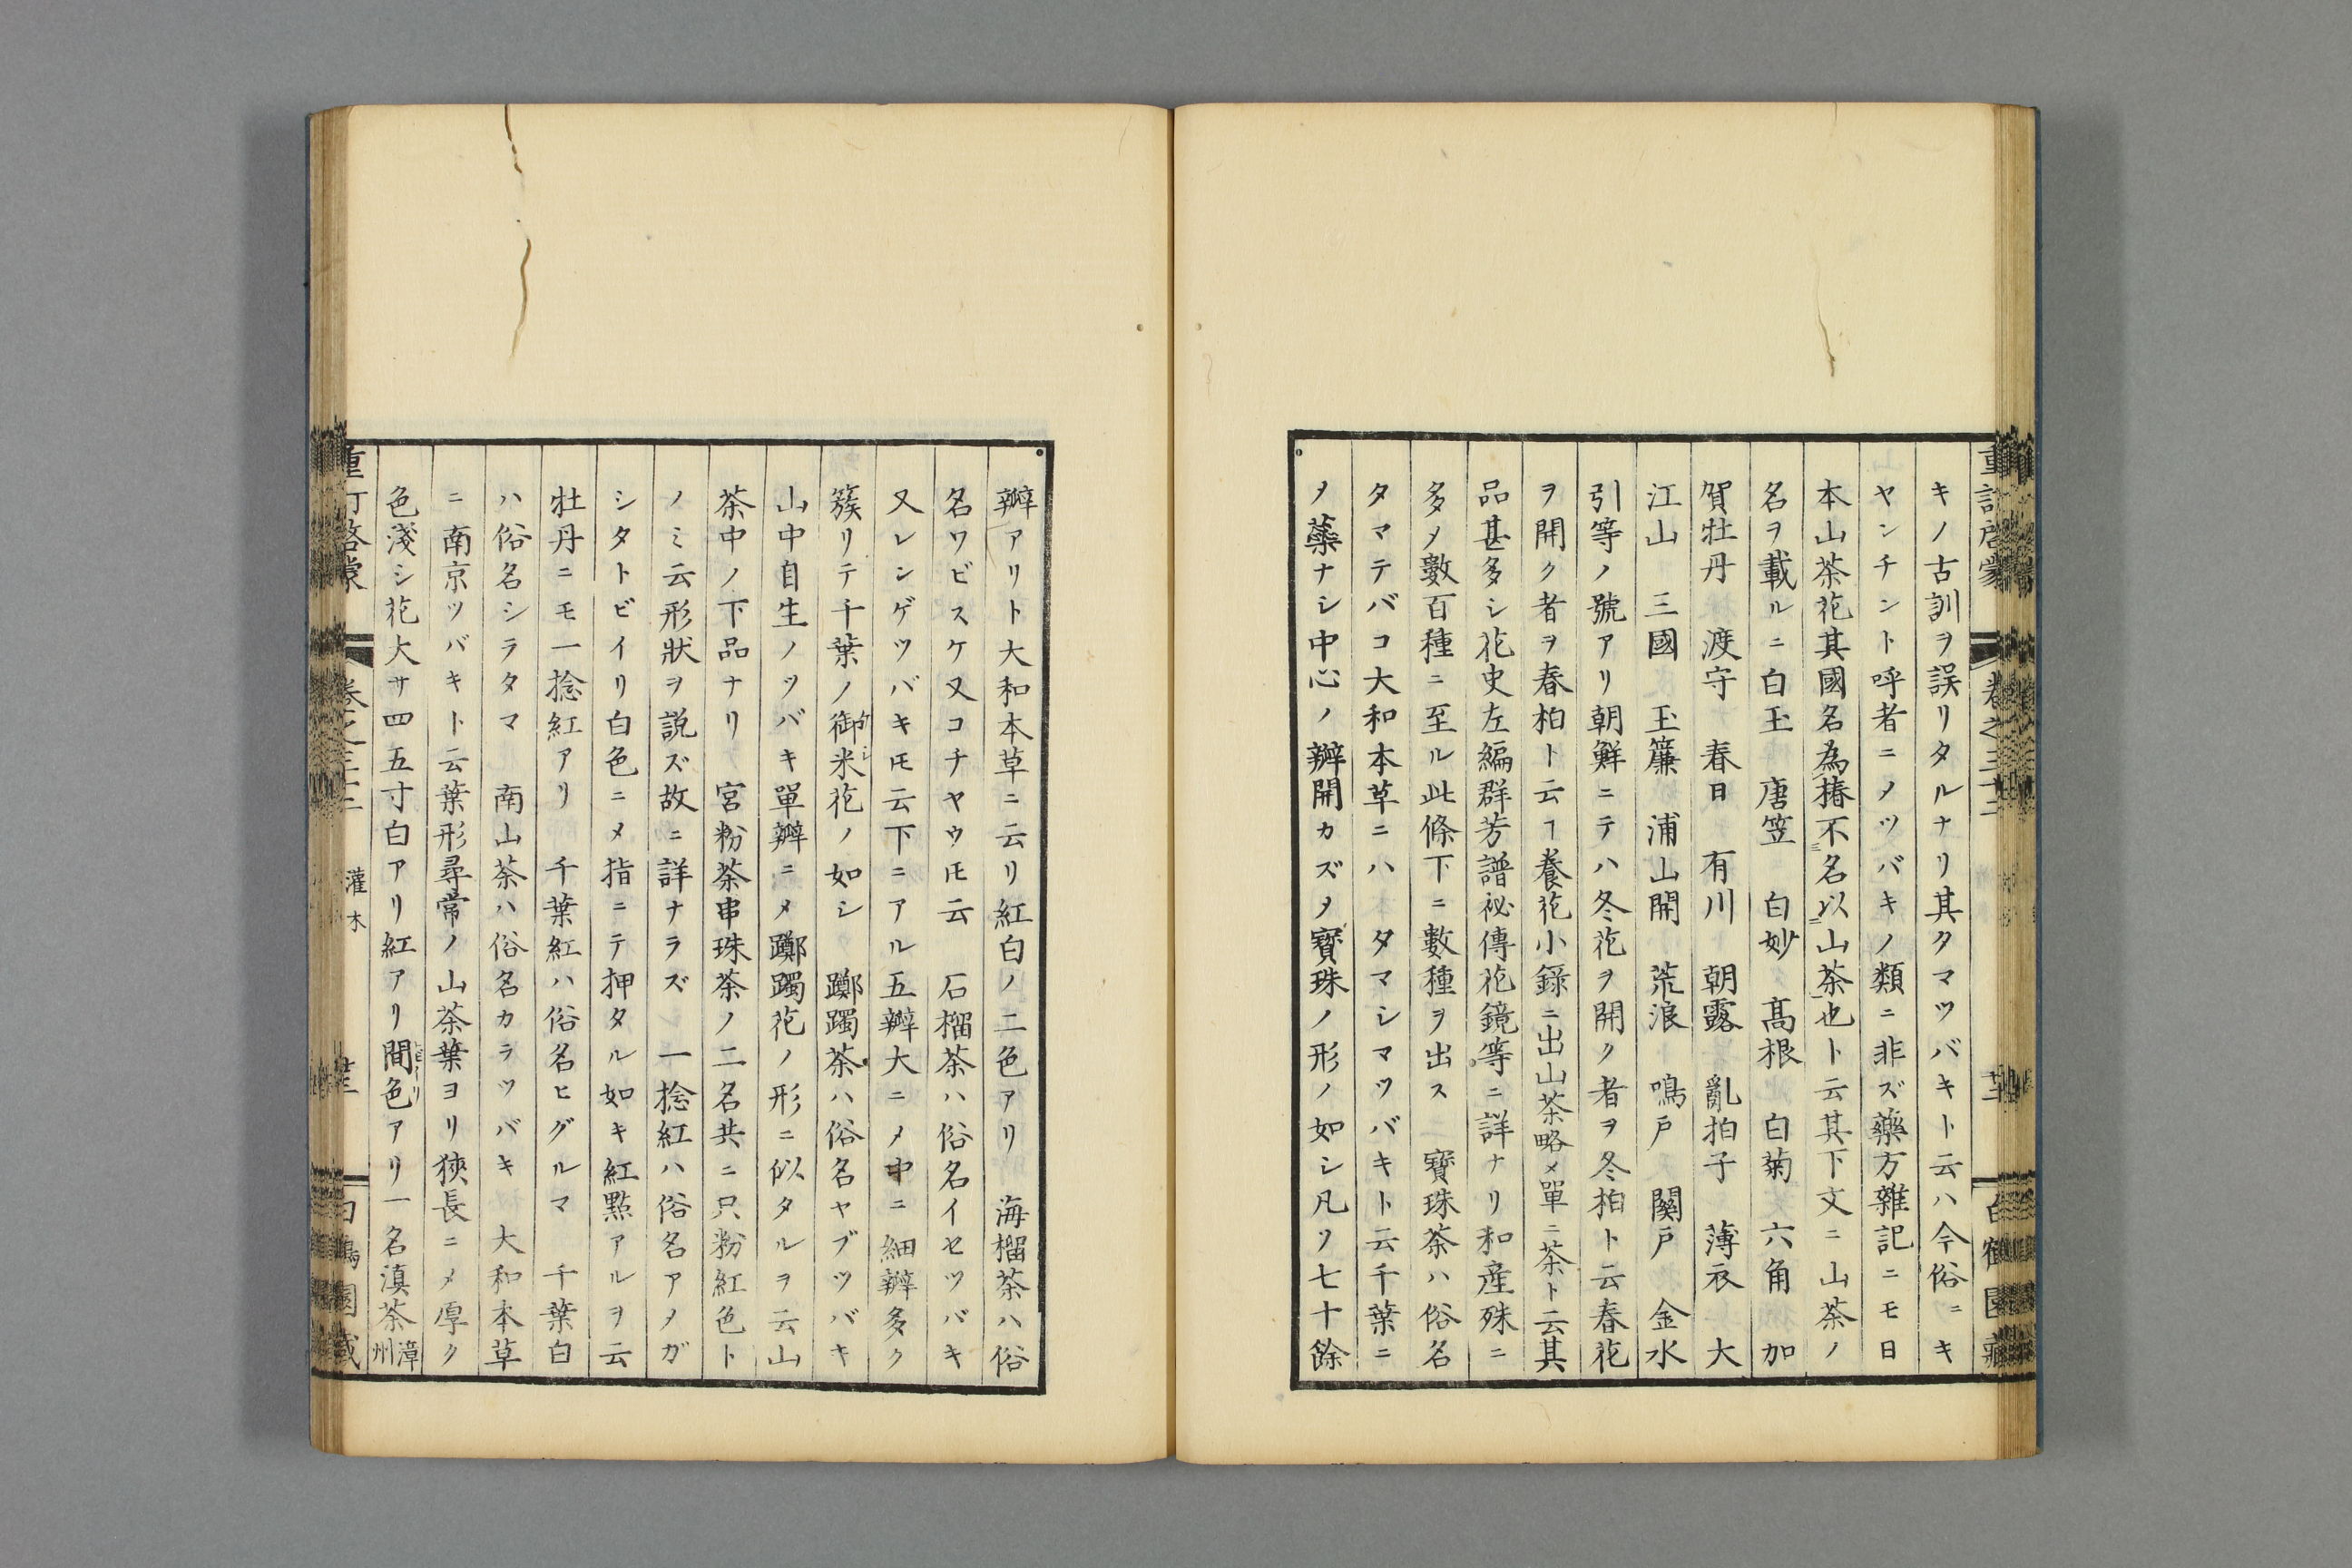 重訂啓蒙 巻之三十二
白鶴園藏
キノ古訓ヲ誤リタルナリ其タマツバキト云ハ今俗ニキ
ヤンチント呼者ニノツバキノ類ニ非ズ藥方雜記ニモ日
本山茶花其國名為椿不名以山茶也ト云其下文ニ山茶ノ
名ヲ載ルニ白玉 唐笠 白妙 髙根 白菊 六角 加
賀牡丹 渡守 春日 有川 朝露 亂拍子 薄衣 大
江山 三國 玉簾 浦山開 荒浪 鳴戸 關戸 金水
引等ノ號アリ朝鮮ニテハ冬花ヲ開ク者ヲ冬柏ト云春花
ヲ開ク者ヲ春柏ト云ヿ養花小錄ニ出山茶略乄單ニ茶ト云其
品甚多シ花史左編群芳譜祕傳花鏡等ニ詳ナリ和産殊ニ
多乄數百種ニ至ル此條下ニ數種ヲ出ス 寶珠茶ハ俗名
タマテバコ大和本草ニハ タマシマツバキト云千葉ニ
乄蘂ナシ中心ノ瓣開カズ乄寶珠ノ形ノ如シ凡ソ七十餘
瓣アリト大和本草ニ云リ紅白ノ二色アリ 海榴茶ハ俗
名ワビスケ又コチヤウ𪜈云 石榴茶ハ俗名イセツバキ
又レンゲツバキ𪜈云下ニアル五瓣大ニ乄中ニ細瓣多ク
簇リテ千葉ノ御米花ノ如シ 躑躅茶ハ俗名ヤブツバキ
山中自生ノツバキ單瓣ニ乄躑躅花ノ形ニ似タルヲ云山
茶中ノ下品ナリ 宮粉茶串珠茶ノ二名共ニ只粉紅色ト
ノミ云形狀ヲ説ズ故ニ詳ナラズ 一捻紅ハ俗名アメガ
シタトビイリ白色ニ乄指ニテ押タル如キ紅點アルヲ云
牡丹ニモ一捻紅アリ 千葉紅ハ俗名ヒグルマ 千葉白
ハ俗名シラタマ 南山茶ハ俗名カラツバキ 大和本草
ニ南京ツバキト云葉形尋常ノ山茶葉ヨリ狹長ニ乄厚ク
色淺シ花大サ四五寸白アリ紅アリ間色アリ一名滇茶漳州
灌木